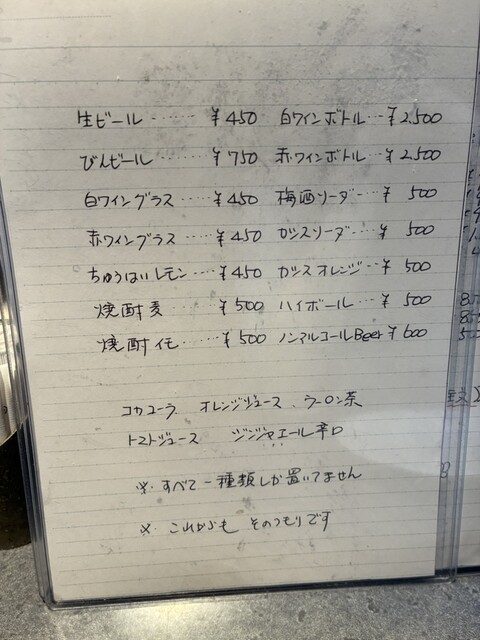 生ビール ‥‥‥ ¥450 白ワインボトル ‥‥ ¥2,500
びんビール ¥750 赤ワインボトル ‥‥ ¥2,500
白ワイングラス ‥‥ ¥450 梅酒ソーダ ‥‥ ¥500
赤ワイングラス ‥‥ ¥450 カシスソーダ ‥‥ ¥500
ちゅうはいレモン ‥‥ ¥450 カシスオレンジ ‥‥ ¥500
焼酎麦 ‥‥‥ ¥500 ハイボール ‥‥ ¥500
焼酎イモ ‥‥‥ ¥500 ノンアルコールBeer ¥600
コカコーラ オレンジジュース、ウーロン茶
トマトジュース ジンジャエール辛口
※ すべて一種類しか置いてません
※ これからも そのつもりです